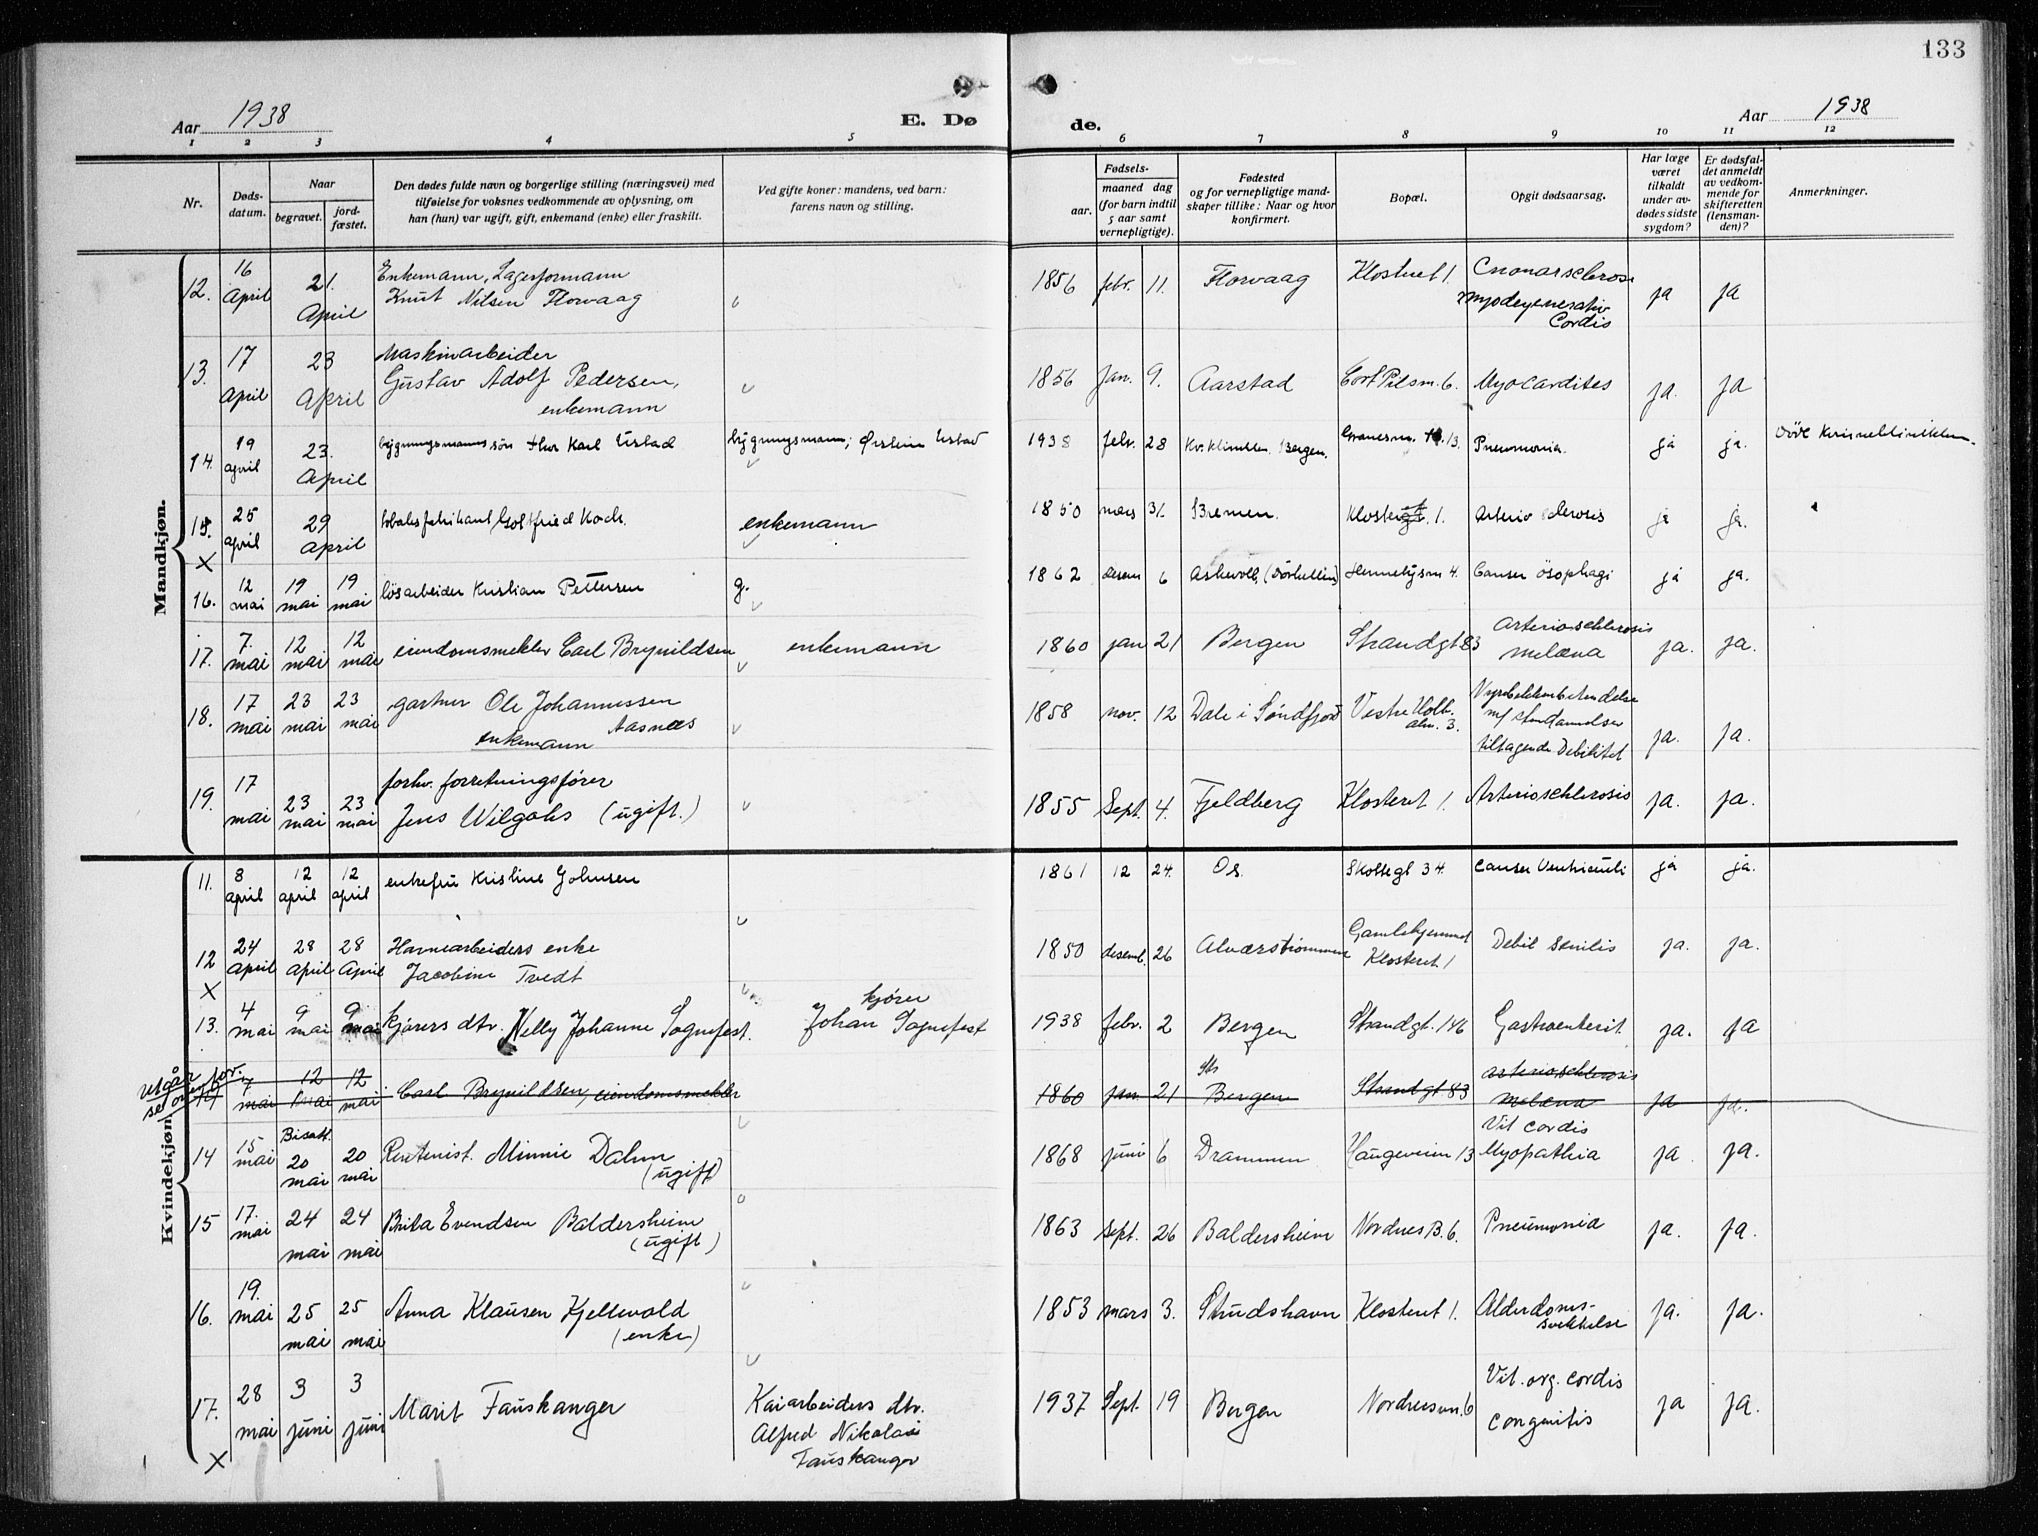 133
Aar 1938
E. Dø
de.
Aar 1938
1 2 3 4 5 6 7 8 9 10 11 12
Nr.
Døds-
datum.
Naar
begravet.
jord-
fæstet.
Den dødes fulde navn og borgerlige stilling (næringsvei) med
tilføielse for voksnes vedkommende av oplysning, om
han (hun) var ugift, gift, enkemand (enke) eller fraskilt.
Ved gifte koner: mandens, ved barn:
farens navn og stilling.
Fødsels-
aar.
maaned dag
(for barn indtil
5 aar samt
vernepligtige).
Fødested
og for vernepligtige mand-
skaper tillike: Naar og hvor
konfirmert.
Bopæl.
Opgit dødsaarsag.
Har læge
været
tilkaldt
under av-
dødes sidste
sygdom?
Er dødsfal-
det anmeldt
av vedkom-
mende for
skifteretten
(lensman-
den)?
Anmerkninger.
Mandkjøn.
12. 16 April 21. April Enkemann, Lagerformann
Knut Nilsen Florvaag
1856 febr. 11. Florvaag Klosteret 1. ja ja
Cordis
13. 17 April 23 April Maskinarbeider
Gustav Adolf Pedersen,
enkemann
1856 Jan. 9. Aarstad Cort Pilsm. 6. Myocardites ja. ja
14. 19 april 23. April bygningsmanns søn Karl Ustad bygningsmann
1938 febr. 28 Kv. klinikken Bergen. 13. Pneumonia. ja ja. Död Kvinneklinikken.
15. 25 april 29 April Gottfried Koch. enkemann
1850 mars 31. Bremen. Klosteret. 1. Arterio sclerosis ja ja.
X
16. 12 mai 19 mai 19 mai lösarbeider Kristian Pettersen g.
1862 desem 6 Askvoll, 4. Canser ösophagi ja ja.
17. 7. mai 12 mai 12 mai eiendomsmekler Carl Brynildsen enkemann
1860 jan 21 Bergen Strandgt 83 Arterioschlerosis
melæna ja. ja.
18. 17 mai 23 mai 23 mai gartner Ole Johannessen
Aasnæs
enkemann
1858 nov. 12 Dale i Søndfjord Vestre Holb.
alm. 3. Nyrebekkenbetendelse
m/ stendannelser
tiltagende Debilitet ja. ja.
19. 17 mai 23 mai 23 mai forhv. forretningsfører
Jens Wilgohs (ugift.)
1855 Sept. 4. Fjeldberg Klosteret 1. Arterioschlerosis ja. ja.
Kvindekjøn.
11. 8 april 12 april 12 april enkefru Kristine Johnsen
1861 12 24. Os. Skottegt 34. Canser Ventriculi ja ja.
12 24 April 28 April 28 April Havnearbeiders enke
Jacobine Tvedt
1850 desemb. 26 Alværstrømmen Gamlehjemmet
Klosteret 1 Debil senilis ja. ja.
X
13. 4 mai 9 mai 9 mai kjørers dtr. Nelly Johanne Sognefest. kjører
Johan Sognefest
1938 febr. 2 Bergen Strandgt. 146 Gastroenterit ja. ja
utgår
se ovenfor.
14 7 mai 12 mai 12 mai Carl Brynildsen, eiendomsmekler
1860 jan. 21 Bergen Strandgt 83 arterioschlerosis
melæna ja ja.
14 15 mai Bisatt. 20 mai 20 mai Rentenist. Minnie Dahm
(ugift)
1868 juni 6 Drammen Haugeveien 13 Vit cordis
Myopathia ja ja.
15 17. mai 24 mai 24 mai Brita Evendsen Baldersheim
(ugift)
1863 sept. 26 Baldersheim Nordnes B. 6. Pneumonia ja. ja.
16. 19. mai 25 mai 25 mai Anna Klausen Kjellevold
(enke)
1853 mars 3. Skudshavn Klosteret 1. Alderdoms-
svekkelse ja. ja.
17. 28 mai 3 juni 3 juni Marit Fauskanger Kaiarbeiders dtr.
Alfred Nikolai
Fauskanger
1937 Sept. 19 Bergen Nordnesvn. 6 Vit. org. cordis
congenitis ja ja.
X